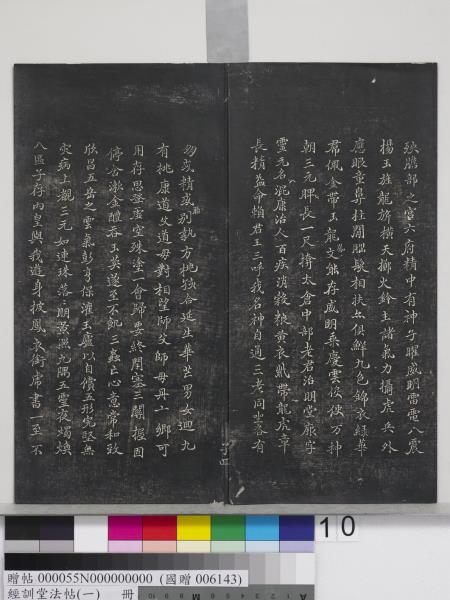 殃膽部之宮六府精中有神子曜威明雷電八震
揚玉旌龍旂橫天擲火鈴主諸氣力攝虎兵外
應眼童鼻柱間腦髮相扶亦俱鮮九色錦衣綠華
帬佩金帶玉龍虎文能存威明乘慶雲役使万神
朝三元脾長一尺掩太倉中部老君治明堂厥字
靈元名混康治人百疾消穀粮黃衣紫帶龍虎章
長精益命賴君王三呼我名神自通三老同坐各有
朋或精或胎別執方桃孩合延生華芒男女迴九
有桃康道父道母對相望師父師母丹玄鄉可
用存思登虛空殊塗一會歸要終閉塞三關握固
停含漱金醴吞玉英遂至不飢三蟲亡心意常和致
欣昌五岳之雲氣彭亨保灌玉廬以自償五形完堅無
灾病上覩三元如連珠落落明景照九隅五靈夜燭煥
八區子存內皇與我遊身披鳳衣銜虎書一至不
10
贈帖 000055N000000000 (國贈 006143)
經訓堂法帖(一) 冊